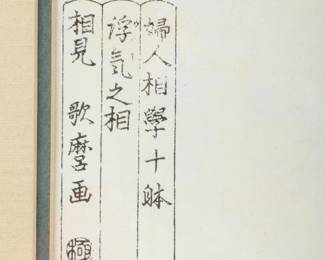 婦人相學十躰
浮気之相
相見 歌麿画
極